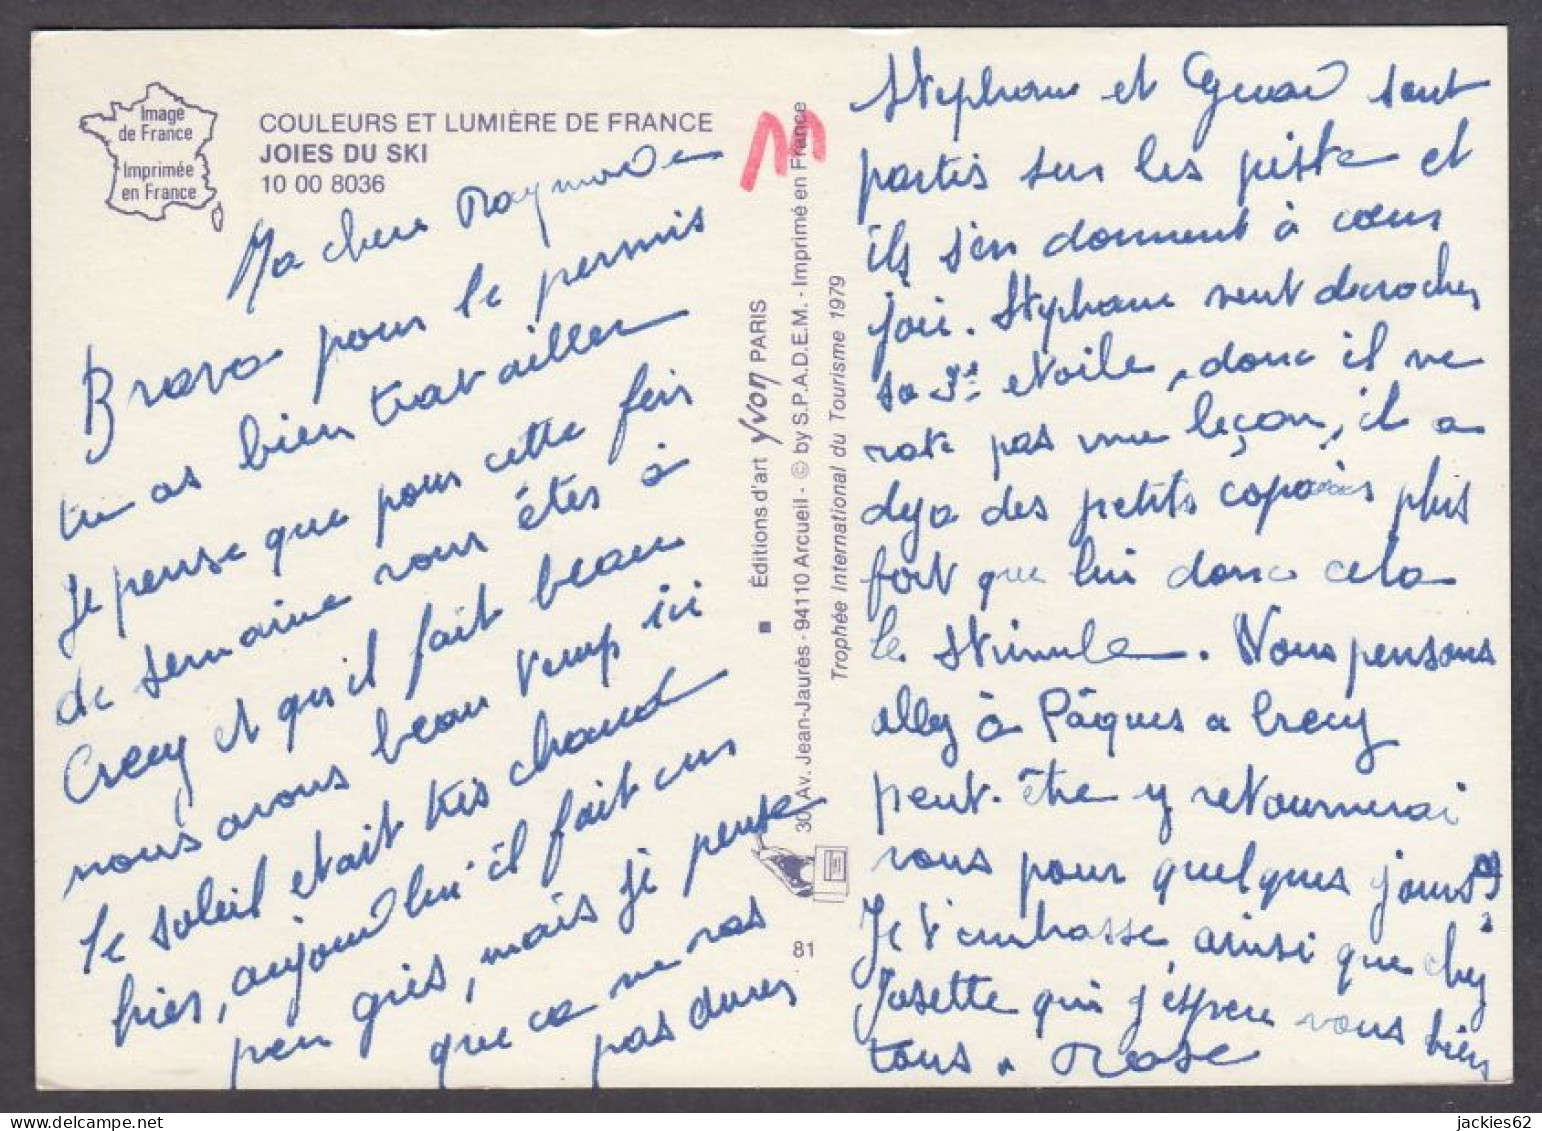 Image
de France
Imprimée
en France
COULEURS ET LUMIÈRE DE FRANCE
JOIES DU SKI
10 00 8036
Ma chere Raymonde
Bravo pour le permis
tu as bien travailler
Je pense que pour cette fois
de semaine vous étes à
Crecy et qu'il fait beau
nous avons beau temp ici
le soleil etait très chaud
hier, aujourd'hui il fait un
peu gris, mais je pense
que ca ne vas
pas durer
M
Éditions d'art Yvon PARIS
30, Av. Jean-Jaurès - 94110 Arcueil - © by S.P.A.D.E.M. - Imprimé en France
Trophée International du Tourisme 1979
81
Stephane et sont
partis sur les piste et
ils s'en donnent à cœur
joie. Stephane veut decrocher
sa 3e etoile, donc il ne
rate pas une leçon, il a
deja des petits copains plus
fort que lui donc cela
le stimule. Nous pensons
allez à Pâques a Crecy
peut-être y retournerai
vous pour quelques jours
Je t'embrasse, ainsi que chez
Josette qui j'espere vous bien
tous. Rose
jackies62